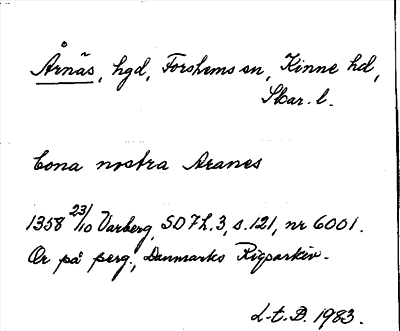 Årnäs, hgd, Forshems sn, Kinne hd,
Skar. l.
Cona nostra Aranes
1358 23/10 Varberg, SD 7 h. 3, s. 121, nr 6001.
Or på perg., Danmarks Rigsarkiv.
L-t. B. 1983.